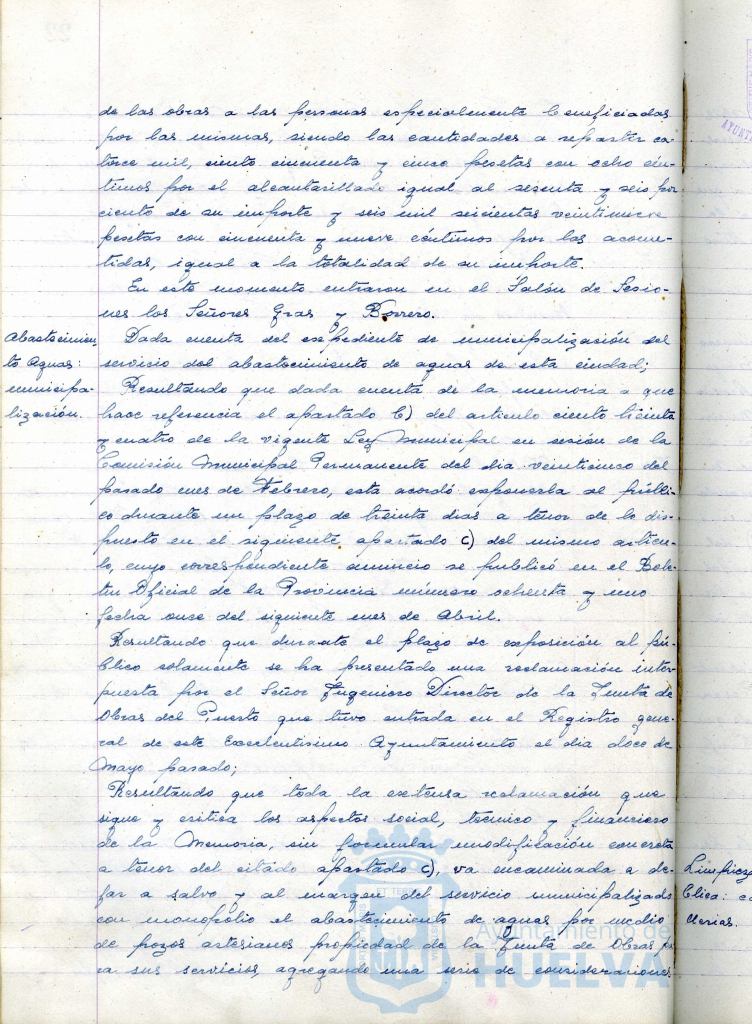 de las obras a las personas especialmente beneficiadas
por las mismas, siendo las cantidades a repartir ca-
torce mil, ciento cincuenta y cinco pesetas con ocho cén-
timos por el alcantarillado igual al sesenta y seis por
ciento de su importe y seis mil seicientas veintinueve
pesetas con cincuenta y nueve céntimos por las acome-
tidas, igual a la totalidad de su importe.
En este momento entraron en el Salón de Sesio-
nes los Señores Gras y Borrero.
Abastecimien-
to Aguas:
municipa-
lización.
Dada cuenta del expediente de municipalización del
servicio del abastecimiento de aguas de esta ciudad;
Resultando que dada cuenta de la memoria a que
hace referencia el apartado b) del articulo ciento treinta
y cuatro de la vigente Ley Municipal en sesión de la
Comisión Municipal Permanente del dia veinticinco del
pasado mes de Febrero, esta acordó exponerla al públi-
co durante un plazo de treinta dias a tenor de lo dis-
puesto en el siguiente apartado c) del mismo artícu-
lo, cuyo correspondiente anuncio se publicó en el Bole-
tin Oficial de la Provincia número ochenta y uno
fecha once del siguiente mes de Abril.
Resultando que durante el plazo de exposición al pú-
blico solamente se ha presentado una reclamación inter-
puesta por el Señor Ingeniero Director de la Junta de
Obras del Puerto que tuvo entrada en el Registro gene-
ral de este Excelentisimo Ayuntamiento el dia doce de
Mayo pasado;
Resultando que toda la extensa reclamación que
sigue y critica los aspectos social, tecnico y financiero
de la Memoria, sin formular modificación concreta
a tenor del citado apartado c), va encaminada a de-
jar a salvo y al margen del servicio municipalizado
con monopolio el abastecimiento de aguas por medio
de pozos artesianos propiedad de la Junta de Obras
a sus servicios, agregando una serie de consideraciones
Ayuntamiento de
HUELVA